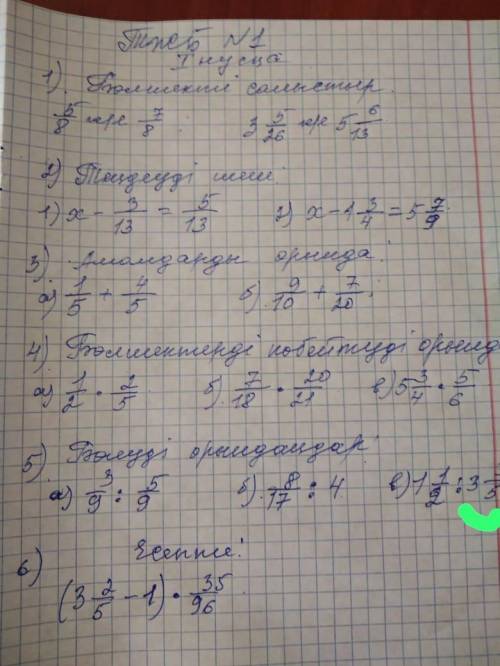 ТЖБ N1
I нусқа
1) Бөлшекті салыстыр.
5/8 және 7/8 ; 3 5/26 және 5 6/13
2) Теңдеуді шеш:
1) x - 3/13 = 5/13 2) x - 1 3/4 = 5 7/9
3) Амалдарды орында:
а) 1/5 + 4/5 б) 9/10 + 7/20;
4) Бөлшектерді көбейтуді орынд
а) 1/2 · 2/5 б) 7/18 · 20/21 в) 5 3/4 · 5/6
5) Бөлуді орындаңдар
а) 3/9 : 5/9 б) 8/17 : 4 в) 1 1/2 : 3
6) Есепте:
(3 2/5 - 1) · 35/96